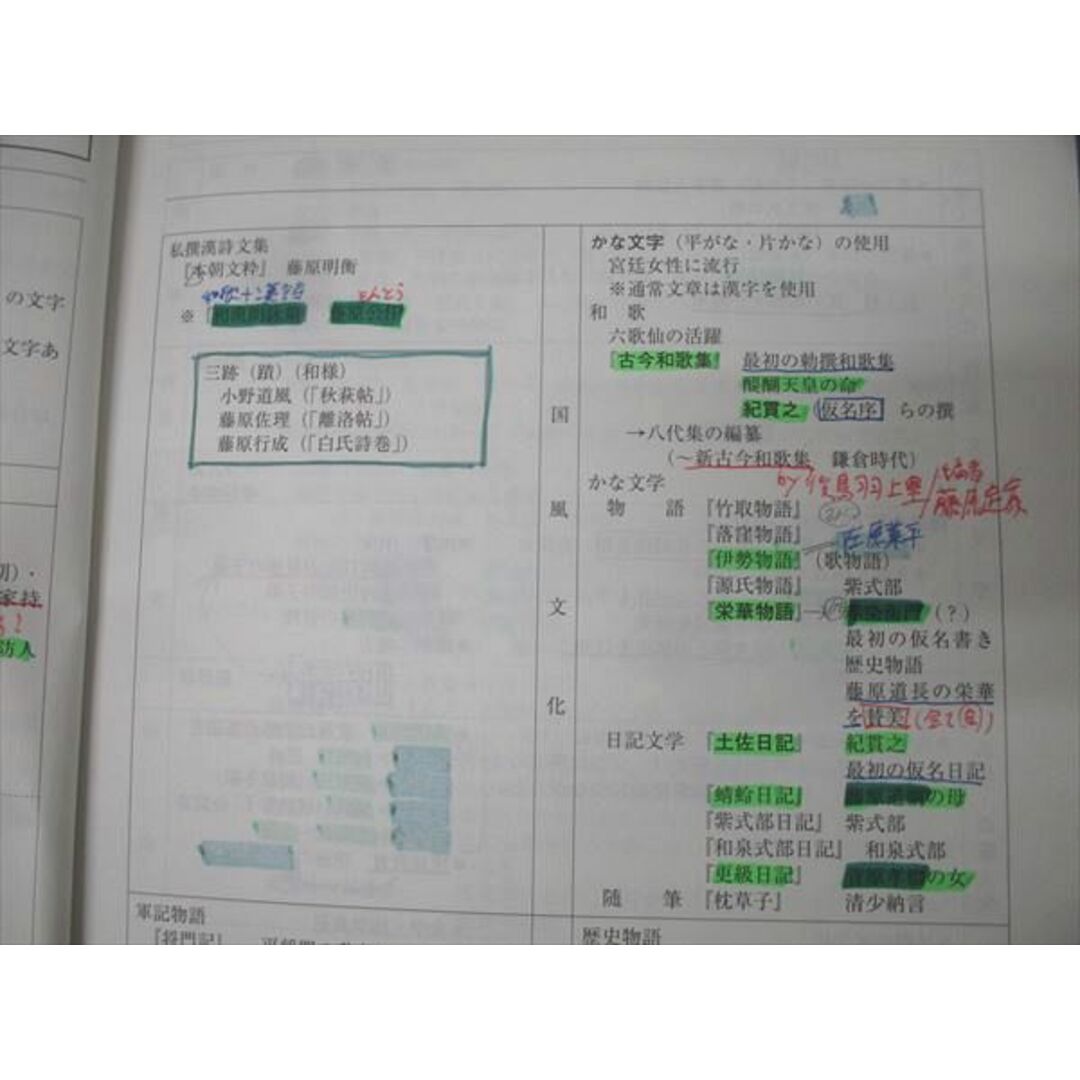 の文字
文字あ
家持
訪人
私撰漢詩文集
『本朝文粋』 藤原明衡
※『和漢朗詠集』 藤原公任
三跡（蹟）（和様）
小野道風（「秋萩帖」）
藤原佐理（「離洛帖」）
藤原行成（「白氏詩巻」）
軍記物語
『将門記』
国風文化
かな文字（平がな・片かな）の使用
宮廷女性に流行
※通常文章は漢字を使用
和歌
六歌仙の活躍
『古今和歌集』 最初の勅撰和歌集
醍醐天皇の命
紀貫之（仮名序）らの撰
→八代集の編纂
（～新古今和歌集 鎌倉時代）
by 後鳥羽上皇/編者藤原定家
かな文学
物語 『竹取物語』
『落窪物語』
在原業平
『伊勢物語』（歌物語）
『源氏物語』 紫式部
『栄華物語』 赤染衛門（？）
最初の仮名書き
歴史物語
藤原道長の栄華
を賛美
日記文学 『土佐日記』 紀貫之
最初の仮名日記
『蜻蛉日記』 藤原道綱の母
『紫式部日記』 紫式部
『和泉式部日記』 和泉式部
『更級日記』 菅原孝標の女
随筆 『枕草子』 清少納言
歴史物語